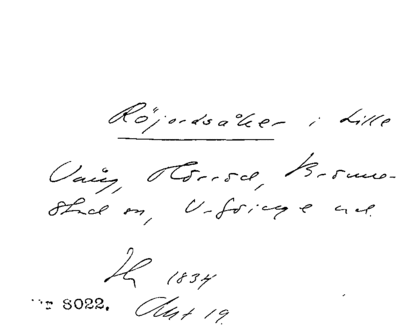 Röjordsåker i Lille
Vång, Hörröd, Brönne-
stad sn, V. Göinge hd.
1834
8022. Akt 19.